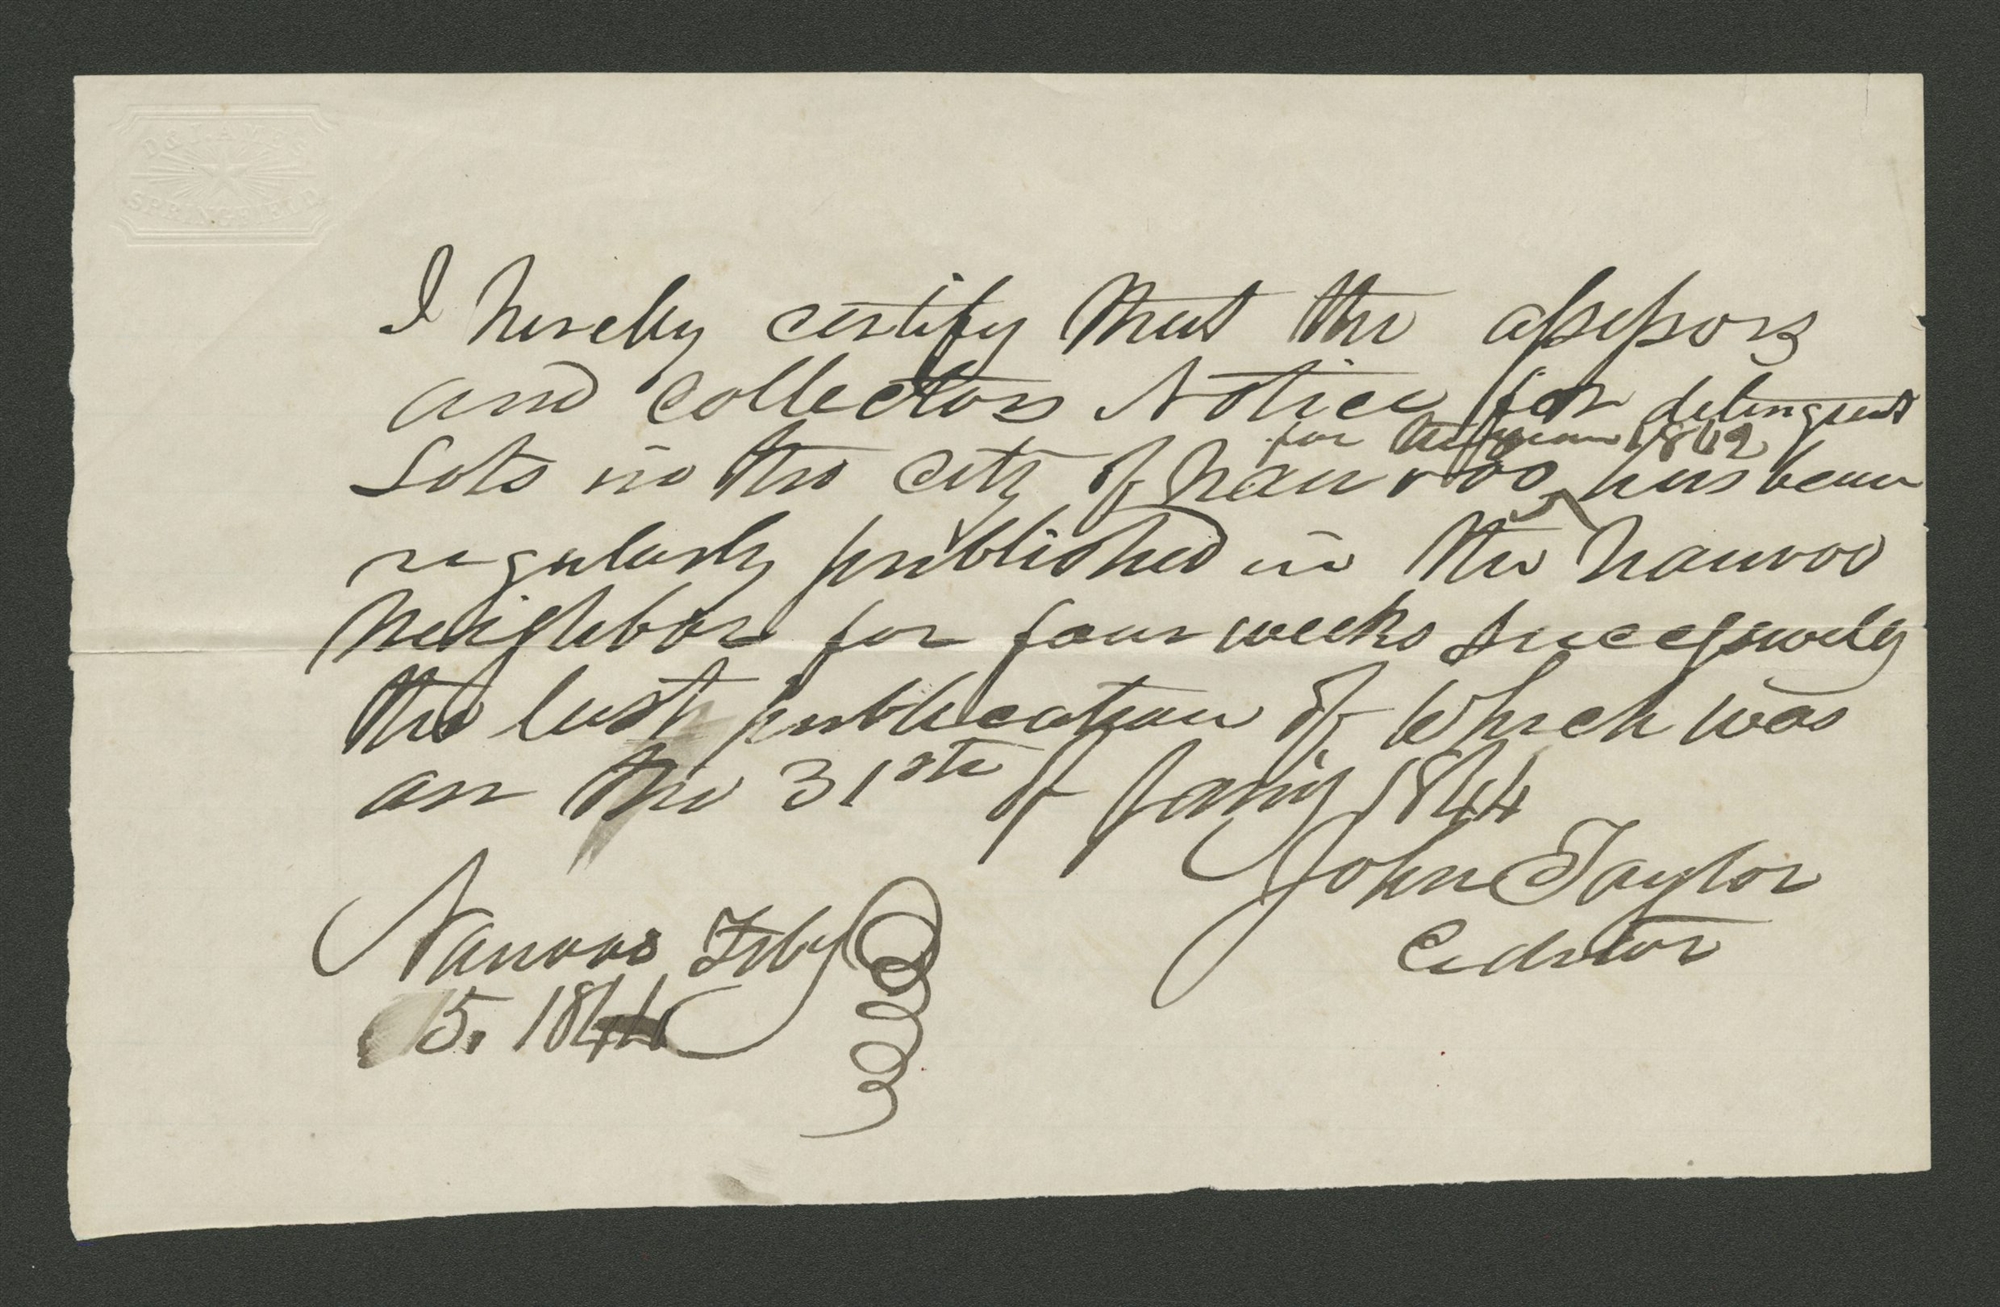 D & J. AMES
SPRINGFIELD
I hereby certify that the assessors
and collectors Notice for delinquent
for the year 1842
Lots in the city of Nauvoo ^ has been
regularly published in the Nauvoo
Neighbor for four weeks successively
the last publication of which was
on the 31st of Jany 1844
John Taylor
Editor
Nauvoo Feby
5. 1844